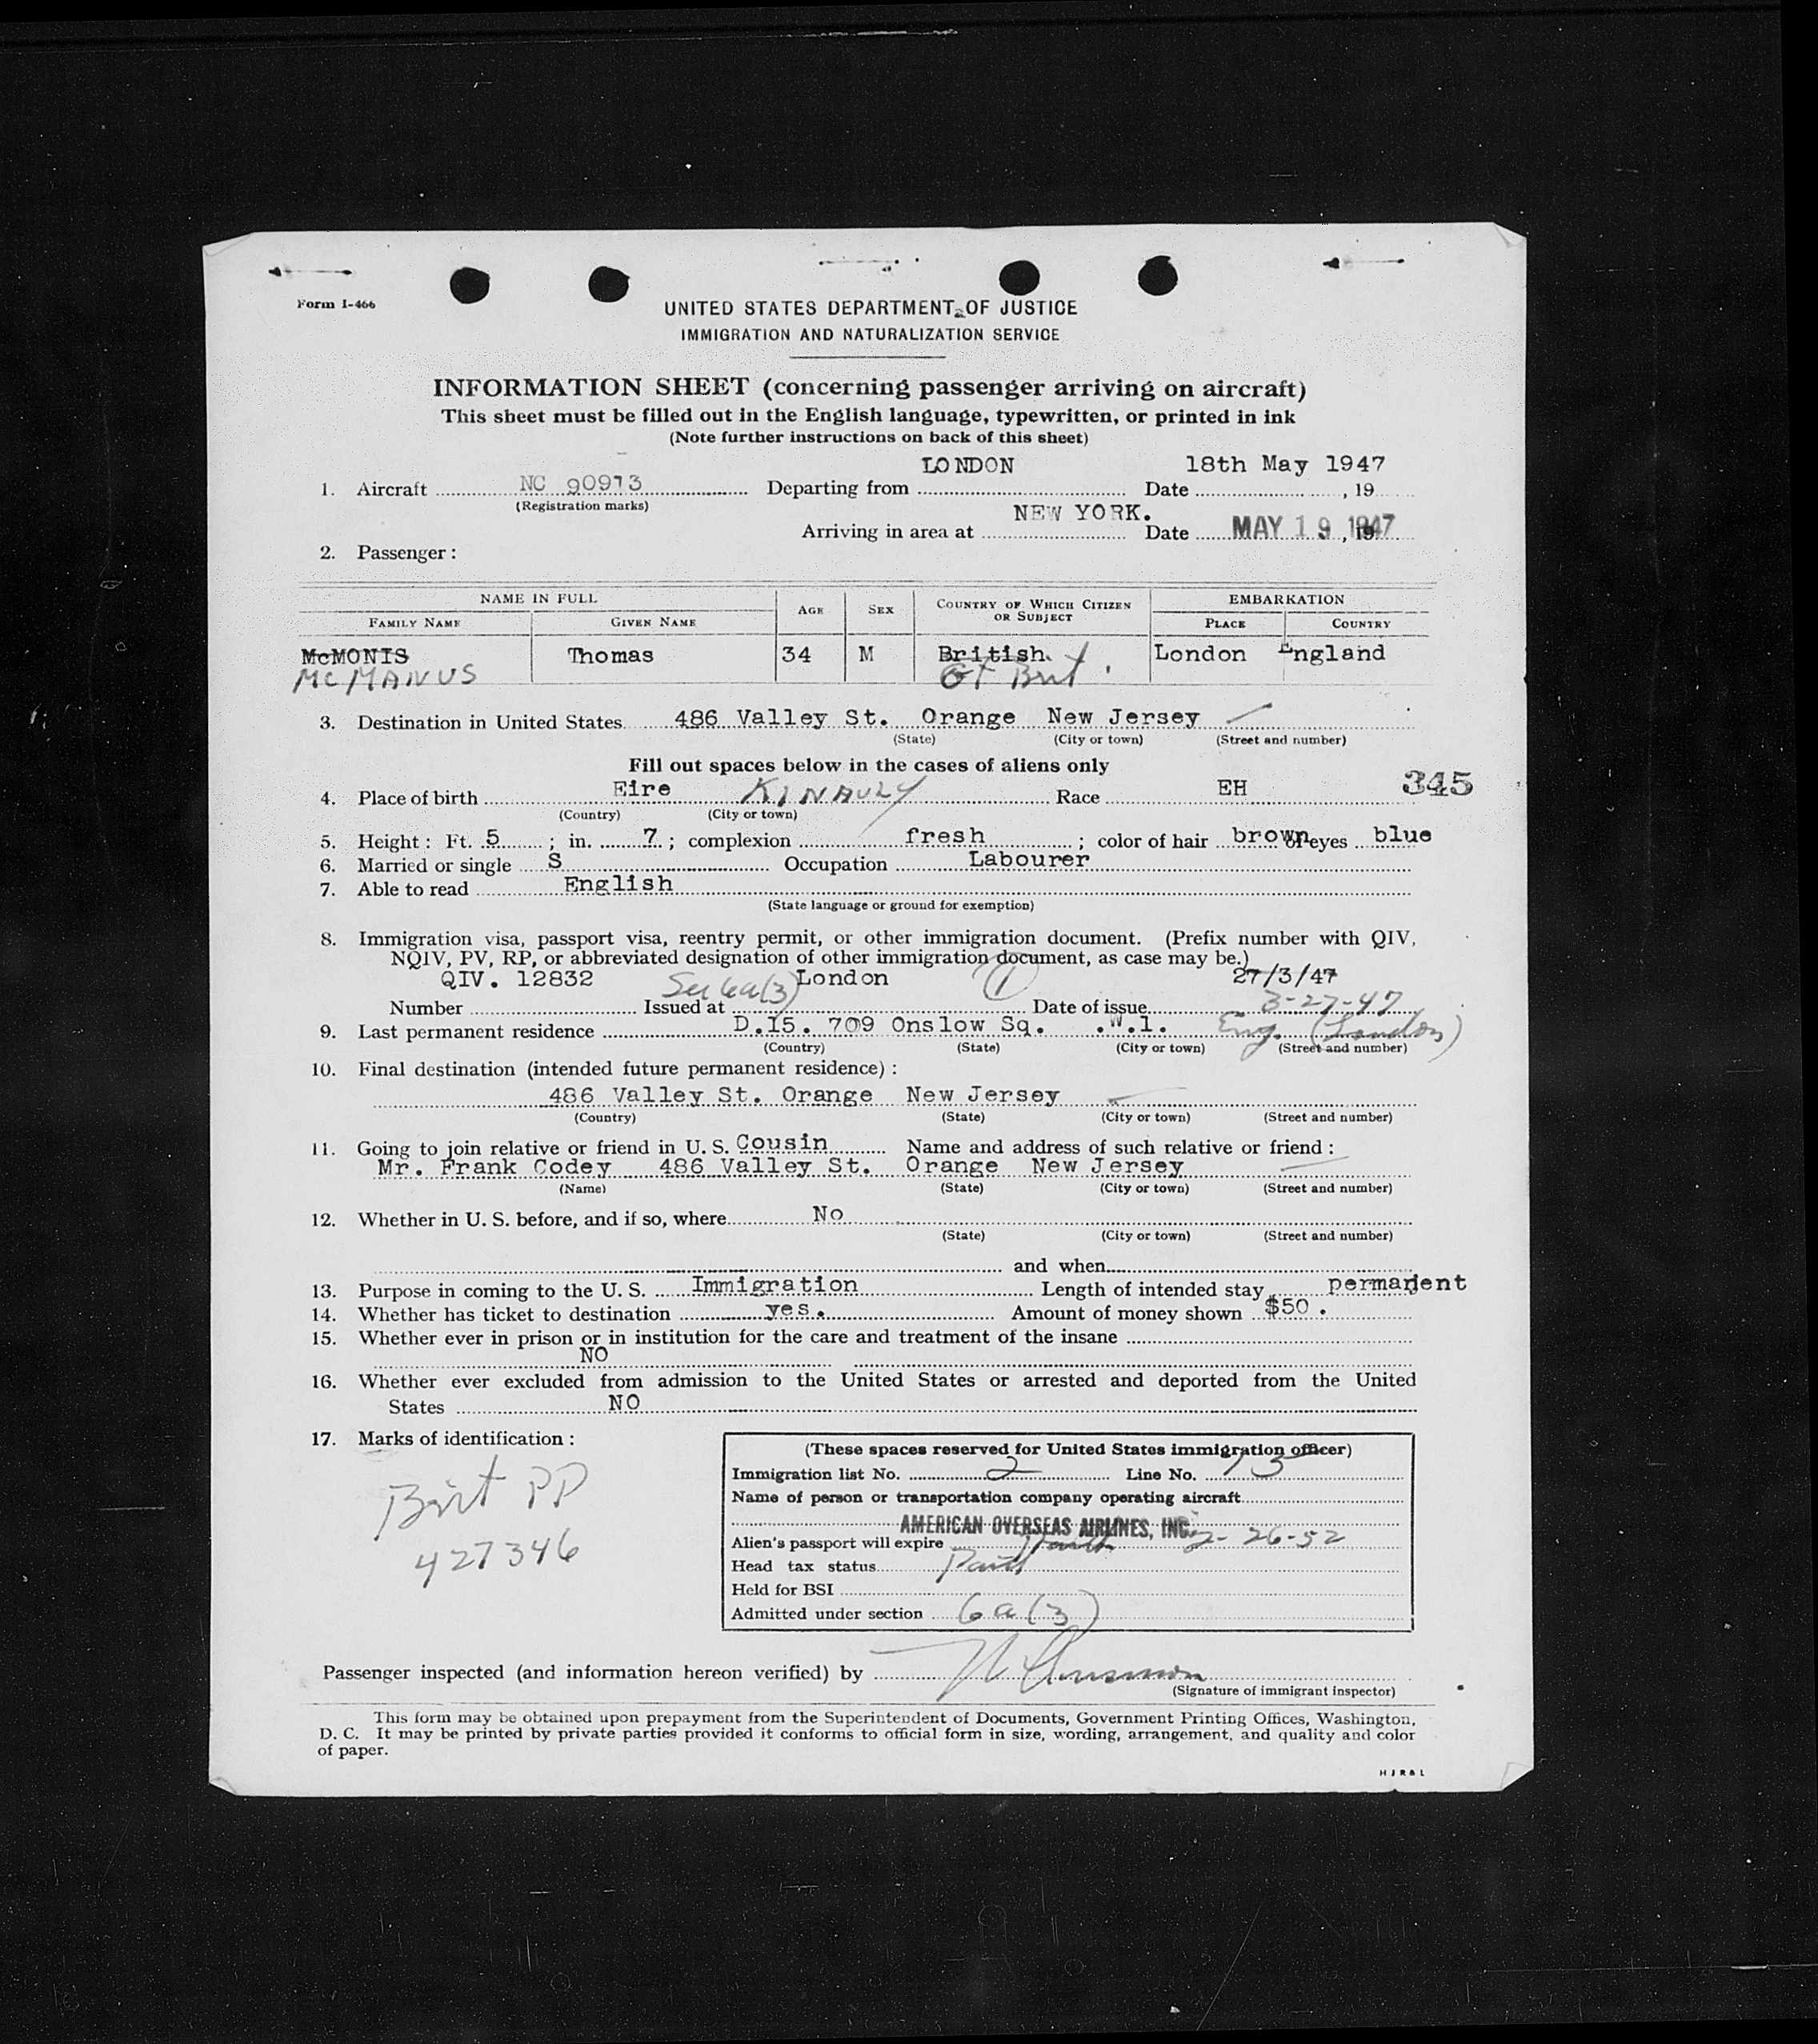 Form I-466
UNITED STATES DEPARTMENT OF JUSTICE
IMMIGRATION AND NATURALIZATION SERVICE
INFORMATION SHEET (concerning passenger arriving on aircraft)
This sheet must be filled out in the English language, typewritten, or printed in ink
(Note further instructions on back of this sheet)
1. Aircraft NC 90913 Departing from LONDON Date 18th May 1947, 19
(Registration marks)
Arriving in area at NEW YORK. Date MAY 19 1947, 19
2. Passenger:
NAME IN FULL
FAMILY NAME GIVEN NAME AGE SEX COUNTRY OF WHICH CITIZEN OR SUBJECT EMBARKATION PLACE COUNTRY
McMONIS Thomas 34 M British London England
McMANUS Gt Brit.
3. Destination in United States 486 Valley St. Orange New Jersey
(State) (City or town) (Street and number)
Fill out spaces below in the cases of aliens only
4. Place of birth Eire KINAULY Race EH 345
(Country) (City or town)
5. Height: Ft. 5; in. 7; complexion fresh; color of hair brown of eyes blue
6. Married or single S Occupation Labourer
7. Able to read English
(State language or ground for exemption)
8. Immigration visa, passport visa, reentry permit, or other immigration document. (Prefix number with QIV,
NQIV, PV, RP, or abbreviated designation of other immigration document, as case may be.)
QIV. 12832 Sec 6a(3) London 1 27/3/47
Number Issued at Date of issue 3-27-47
9. Last permanent residence D.15. 709 Onslow Sq. .W.1. Eng. (London)
(Country) (State) (City or town) (Street and number)
10. Final destination (intended future permanent residence):
486 Valley St. Orange New Jersey
(Country) (State) (City or town) (Street and number)
11. Going to join relative or friend in U. S. Cousin Name and address of such relative or friend:
Mr. Frank Codey 486 Valley St. Orange New Jersey
(Name) (State) (City or town) (Street and number)
12. Whether in U. S. before, and if so, where No
(State) (City or town) (Street and number)
and when
13. Purpose in coming to the U. S. Immigration Length of intended stay permanent
14. Whether has ticket to destination yes. Amount of money shown $50.
15. Whether ever in prison or in institution for the care and treatment of the insane
NO
16. Whether ever excluded from admission to the United States or arrested and deported from the United
States NO
17. Marks of identification:
Brit PP
427346
(These spaces reserved for United States immigration officer)
Immigration list No. 2 Line No. 13
Name of person or transportation company operating aircraft
AMERICAN OVERSEAS AIRLINES, INC.
Alien's passport will expire 2-26-52
Head tax status Paid
Held for BSI
Admitted under section 6a(3)
Passenger inspected (and information hereon verified) by
(Signature of immigrant inspector)
This form may be obtained upon prepayment from the Superintendent of Documents, Government Printing Offices, Washington,
D. C. It may be printed by private parties provided it conforms to official form in size, wording, arrangement, and quality and color
of paper.
HJR&L